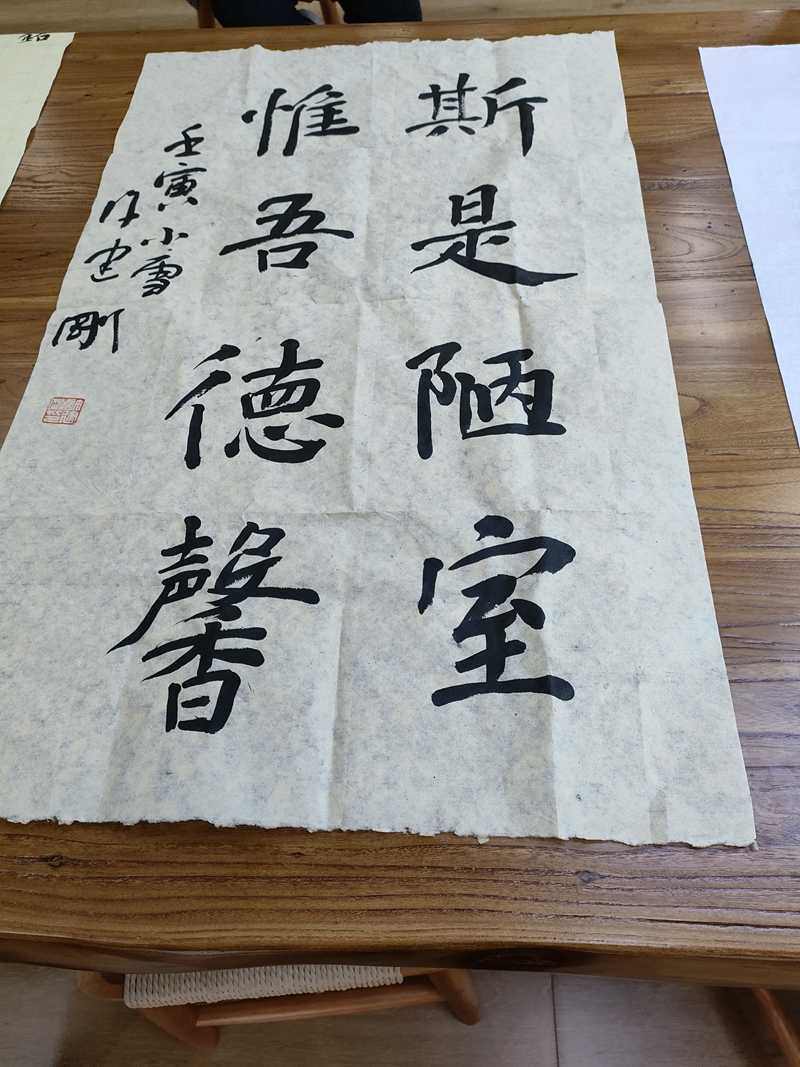 斯是陋室
惟吾德馨
壬寅小雪
建刚